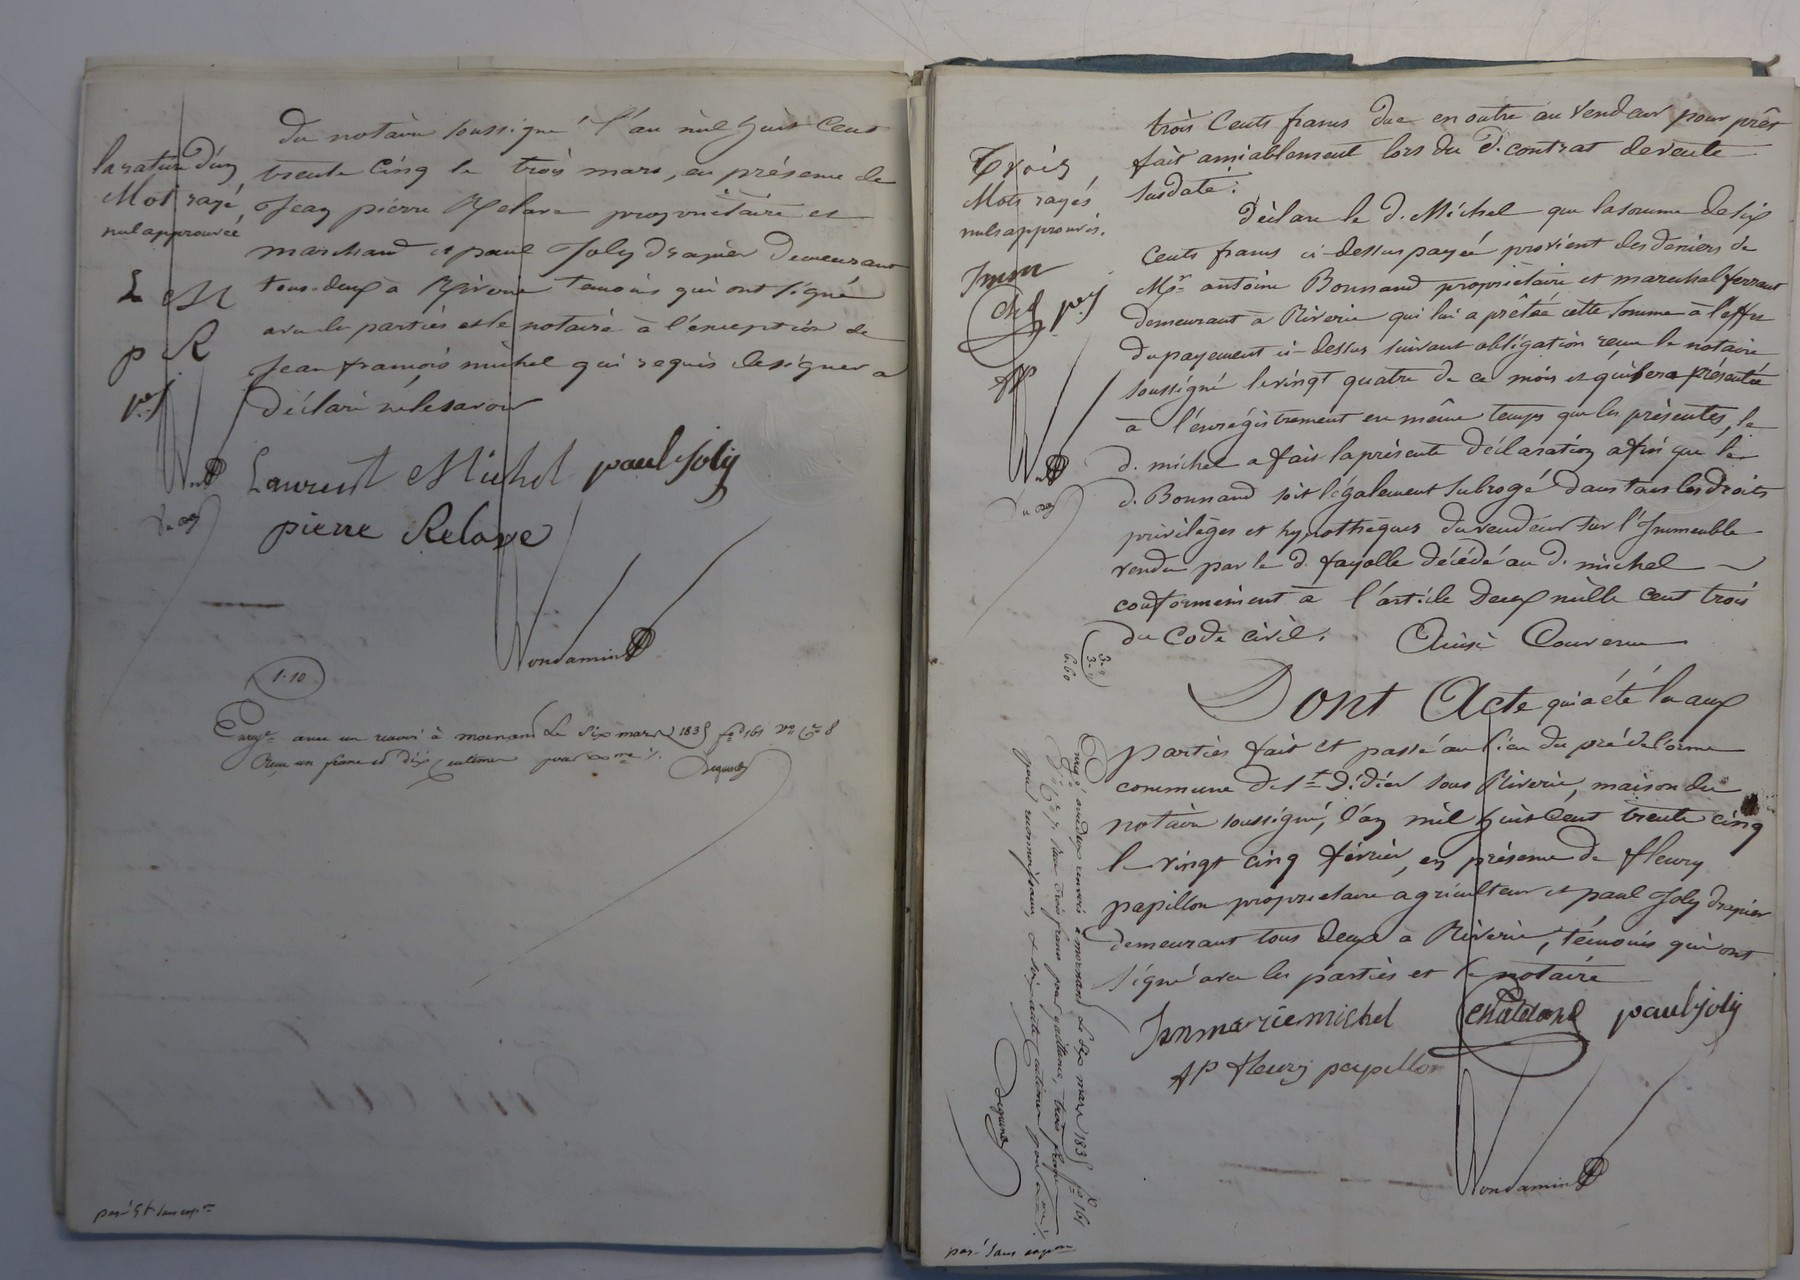 du notaire soussigné l'an mil huit cent
trente cinq le trois mars, en présence de
Jean pierre Relave propriétaire et
marchand et paul Joly drapier demeurant
tous deux à Riverie temoins qui ont signé
avec les parties et le notaire à l'exception de
Jean françois michel qui requis de signer a
déclaré ne le savoir
la rature d'un
Mot rayé
nul approuvée
L M
p R
p. J
Laurent Michel paul Joly
pierre Relave
Vondamin
1.10
Enregt. avec un renvoi à mornant le six mars 1835 fo. 161 Vo. Ce. 8
Reçu un franc et dix centimes pour Xme ./.
trois cents francs due en outre au vendeur pour prêt
fait amiablement lors du d. contrat de vente
susdaté.
déclare le d. Michel que la somme de six
cents francs ci-dessus payée provient des deniers de
Mr. antoine Bonnand propriétaire et marechal ferrant
demeurant à Riverie qui lui a prêtée cette somme à l'effet
du payement ci-dessus suivant obligation reçue le notaire
soussigné le vingt quatre de ce mois et qui sera présentée
à l'enregistrement en même temps que les présentes, le
d. michel a fait la présente déclaration afin que le
d. Bonnand soit légalement subrogé dans tous les droits
privilèges et hypothèques du vendeur sur l'Immeuble
vendu par le d. fayolle décédé au d. michel
conformément à l'article deux mille cent trois
du code civil. Ainsi Convenu
Dont Acte qui a été lu aux
parties fait et passé au lieu du pré de l'orme
commune de St. Didier sous Riverie, maison du
notaire soussigné, l'an mil huit cent trente cinq
le vingt cinq février, en présence de fleury
papillon propriétaire agriculteur et paul Joly drapier
demeurant tous deux à Riverie, témoins qui ont
signé avec les parties et le notaire
Trois
Mots rayés
nuls approuvés.
Jmm
p. J
fp
Jnmarie michel paul Joly
fp fleury papillon
Vondamin
3..
3..
6.60
Enregé. avec deux renvois à mornant le six mars 1835 fo. 161
Reçu trois francs pour quittance, trois francs